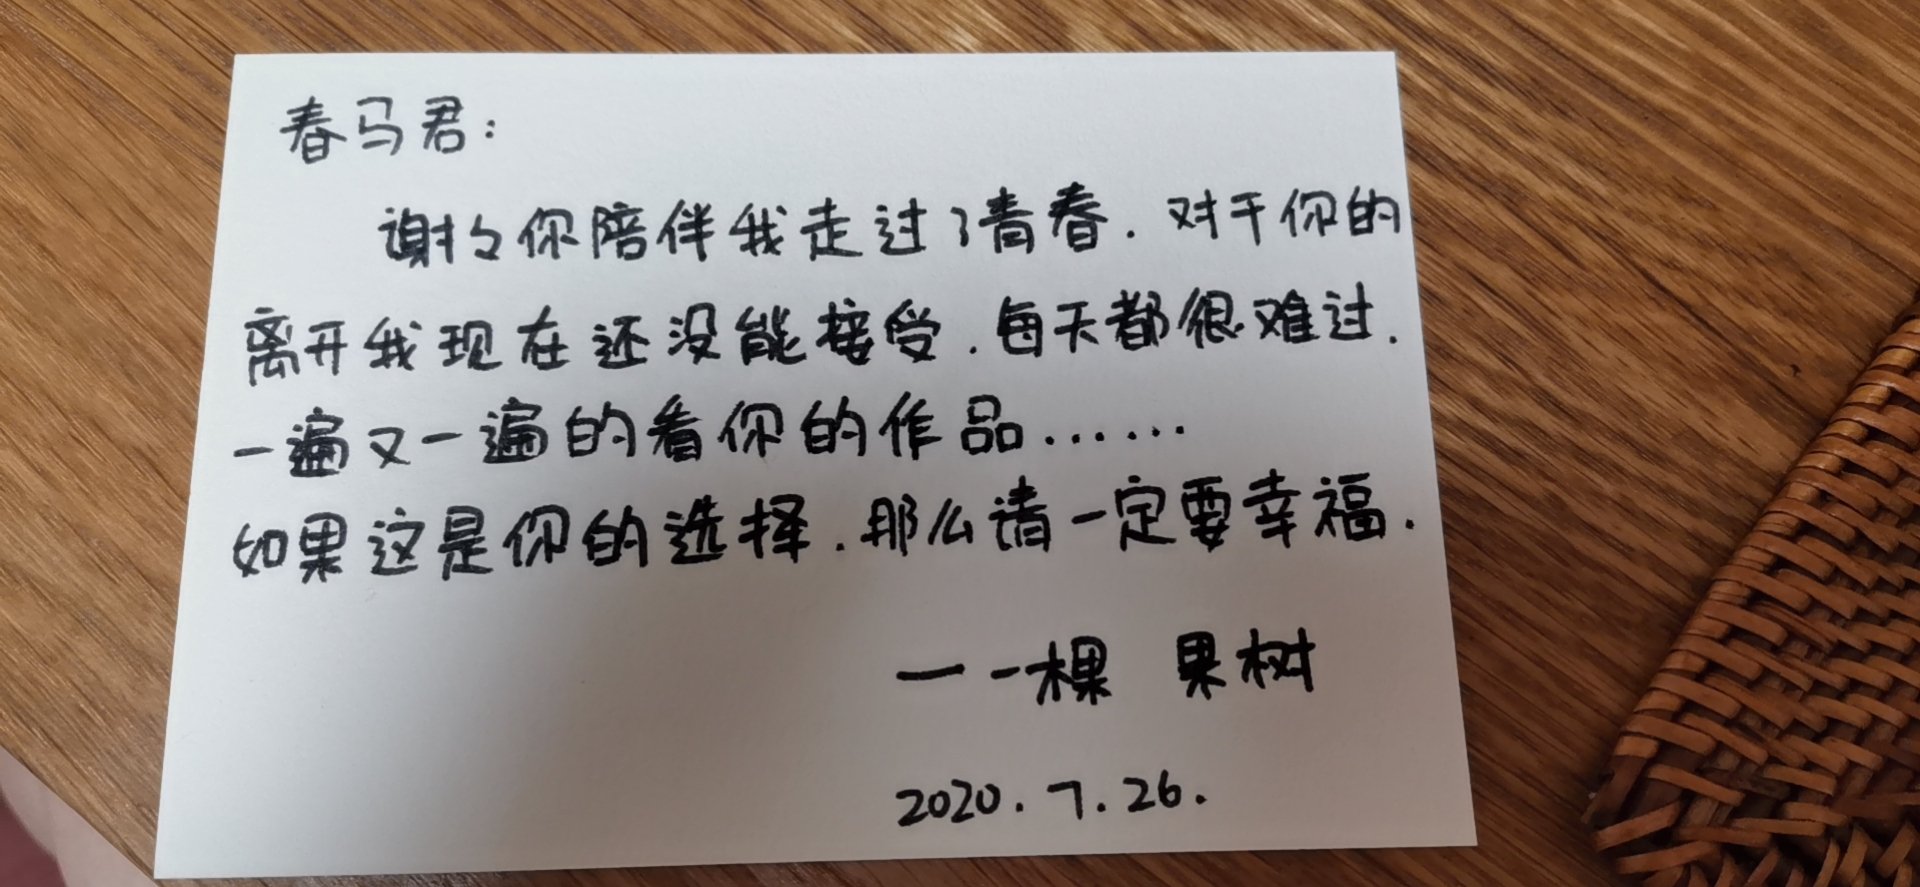 春马君：
谢々你陪伴我走过了青春．对于你的
离开我现在还没能接受．每天都很难过．
一遍又一遍的看你的作品……
如果这是你的选择．那么请一定要幸福．
一 一棵 果树
2020.7.26.